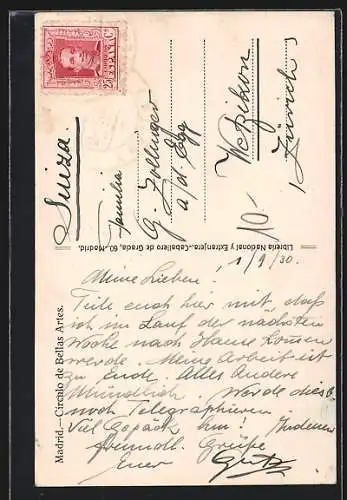 Madrid.—Círculo de Bellas Artes.
Librería Nacional y Extranjera.—Caballero de Gracia, 60.-Madrid.
25 Cs
ESPAÑA
Suiza.
Familia
G. Zollinger
a/d. Egg
Wetzikon
Zürich
10-
1/9/30.
Meine Lieben!
Teile euch hier mit daß
ich im Lauf der nächsten
Woche nach Hause komen
werde. Meine Arbeit ist
zu Ende. Alles Andere
Mündlich. Werde dies
noch Telegraphieren
Viel Gepäck
freundl. Grüße
Euer